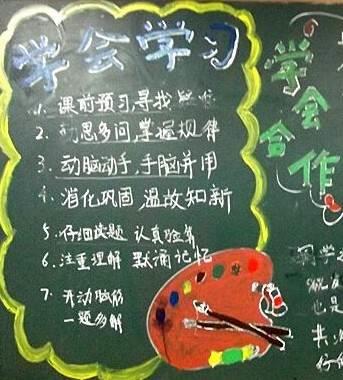 学会学习
1. 课前预习,寻找疑难
2. 勤思多问,掌握规律
3. 动脑动手,手脑并用
4. 消化巩固 温故知新
5. 仔细读题 认真验算
6. 注重理解 默诵记忆
7. 开动脑筋
一题多解
学会
合作